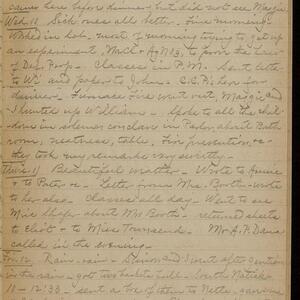 came here before dinner, but did not see Margie
Wed. 11 Sick ones all better. Fine morning.
Worked in lab. most of morning trying to get up
an experiment, to prove the Law
of Def. Prop. - Classes in P.M. Sent
to Wi and paper to John. C.C. for
dinner. Furnace Fire went out, Margie and
I hunted up William - Spoke to all the chil-
dren in solemn conclave in Parlor about Bath
room, neatness, table, Fire prevention, &c
They took my remarks very sweetly -
Thurs. Beautiful weather - Wrote to
to Pater &c - Letter from Mrs. Booth - wrote
to her also. Classes all day - Went to see
Miss about Mrs Booth - returned sheets
to & to Miss Townsend. Mr A. F. Dana
called in the evening -
Rain - rain - and I went after
in the rain - got two baskets full -
10 - 12:30 - sent a box of them to Nettie,